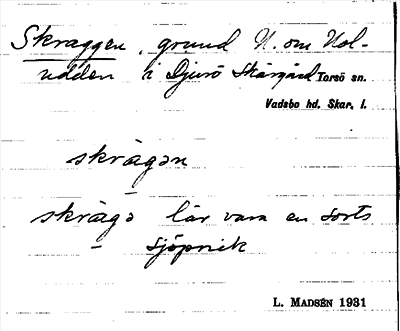 Skraggen, grund N. om Nol-
udden i Djurö Skärgård Torsö sn.
Vadsbo hd. Skar. l.
skrágən
skrágə lär vara en sorts
sjöpnik
L. MADSÉN 1931